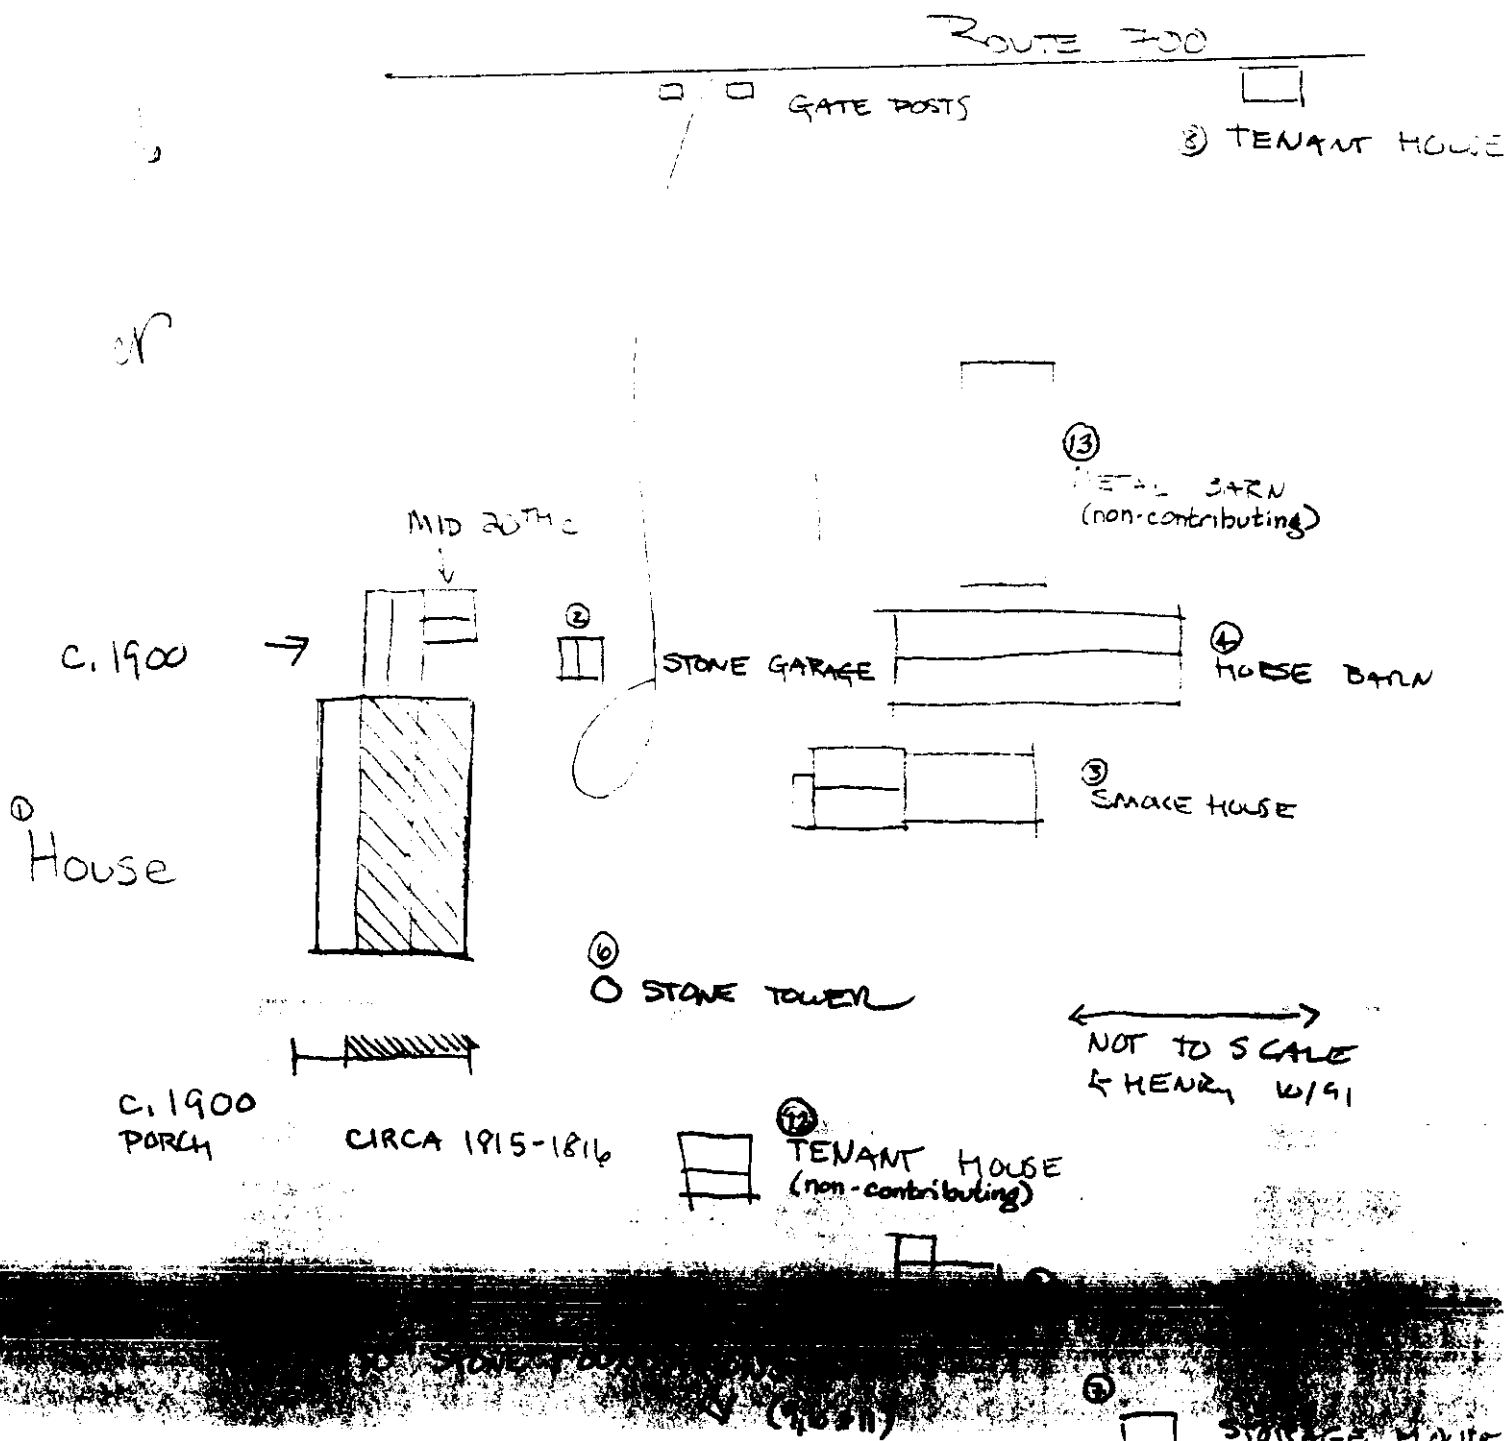 ROUTE 700
GATE POSTS
⑧ TENANT HOUSE
N
⑬
METAL BARN
(non-contributing)
MID 20TH C
C. 1900 →
②
STONE GARAGE
④
HORSE BARN
③
SMOKE HOUSE
①
House
⑥
STONE TOWER
NOT TO SCALE
HENRY 10/91
C. 1900
PORCH
CIRCA 1815-1816
⑫
TENANT HOUSE
(non-contributing)
STONE
⑦
STORAGE HOUSE